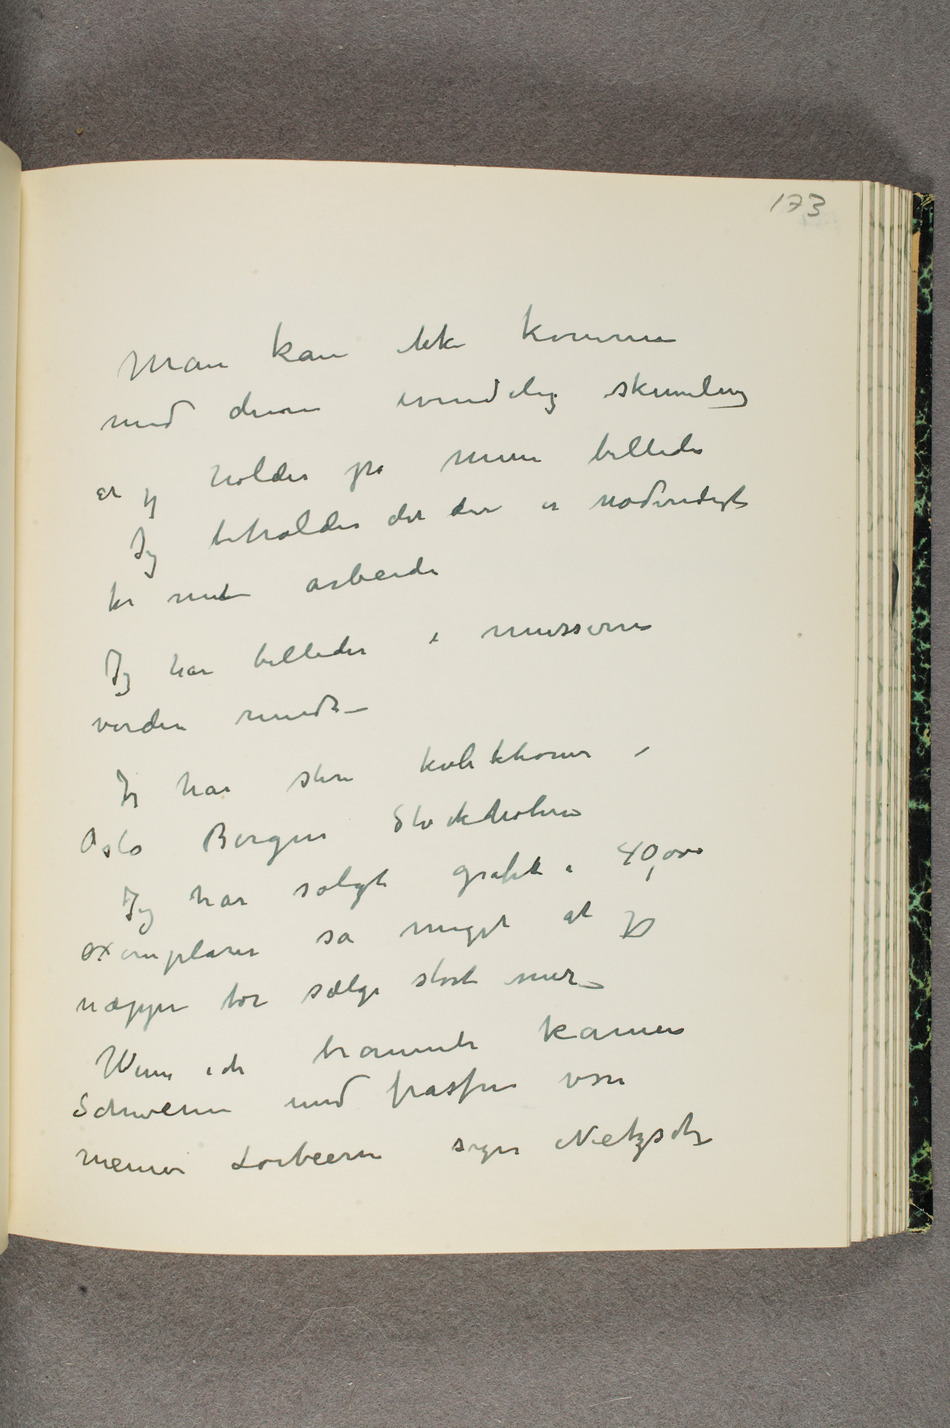 173
Man kan ikke komme
med denne evindelig skumling
at jeg holder på mine billeder
Jeg beholder det der er nødvendigt
for mit arbeide
Jeg har billeder i museerne
verden rundt –
Jeg har store kollektioner i
Oslo Bergen Stockholm
Jeg har solgt grafik i 40,000
exemplarer så meget at jeg
næppe tør sælge stort mer –
Wenn ich träumte kamen
Schweine und frassen von
meinen Lorbeern siger Nietzsche